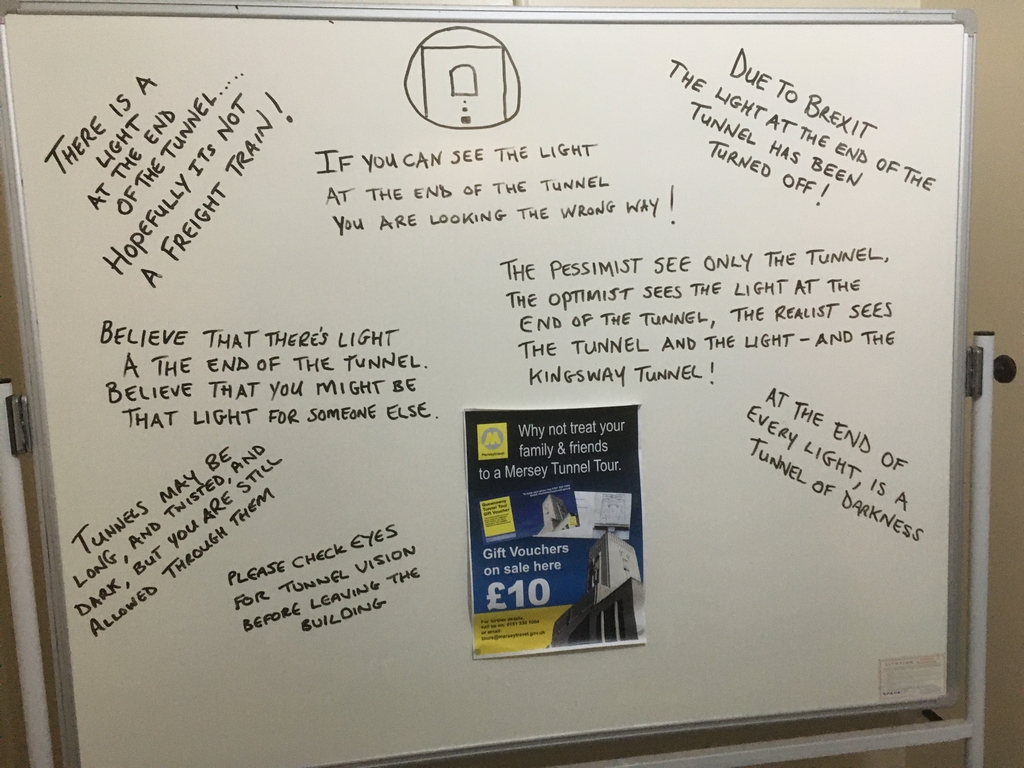 THERE IS A
LIGHT
AT THE END
OF THE TUNNEL.....
HOPEFULLY ITS NOT
A FREIGHT TRAIN!
IF YOU CAN SEE THE LIGHT
AT THE END OF THE TUNNEL
YOU ARE LOOKING THE WRONG WAY!
DUE TO BREXIT
THE LIGHT AT THE END OF THE
TUNNEL HAS BEEN
TURNED OFF!
THE PESSIMIST SEE ONLY THE TUNNEL,
THE OPTIMIST SEES THE LIGHT AT THE
END OF THE TUNNEL, THE REALIST SEES
THE TUNNEL AND THE LIGHT - AND THE
KINGSWAY TUNNEL!
BELIEVE THAT THERE'S LIGHT
A THE END OF THE TUNNEL.
BELIEVE THAT YOU MIGHT BE
THAT LIGHT FOR SOMEONE ELSE.
AT THE END OF
EVERY LIGHT, IS A
TUNNEL OF DARKNESS
TUNNELS MAY BE
LONG, AND TWISTED, AND
DARK, BUT YOU ARE STILL
ALLOWED THROUGH THEM
PLEASE CHECK EYES
FOR TUNNEL VISION
BEFORE LEAVING THE
BUILDING
M
Merseytravel
Why not treat your
family & friends
to a Mersey Tunnel Tour.
Tunnel Tour
Gift Voucher
Gift Vouchers
on sale here
£10
For further details,
or email
tours@merseytravel.gov.uk